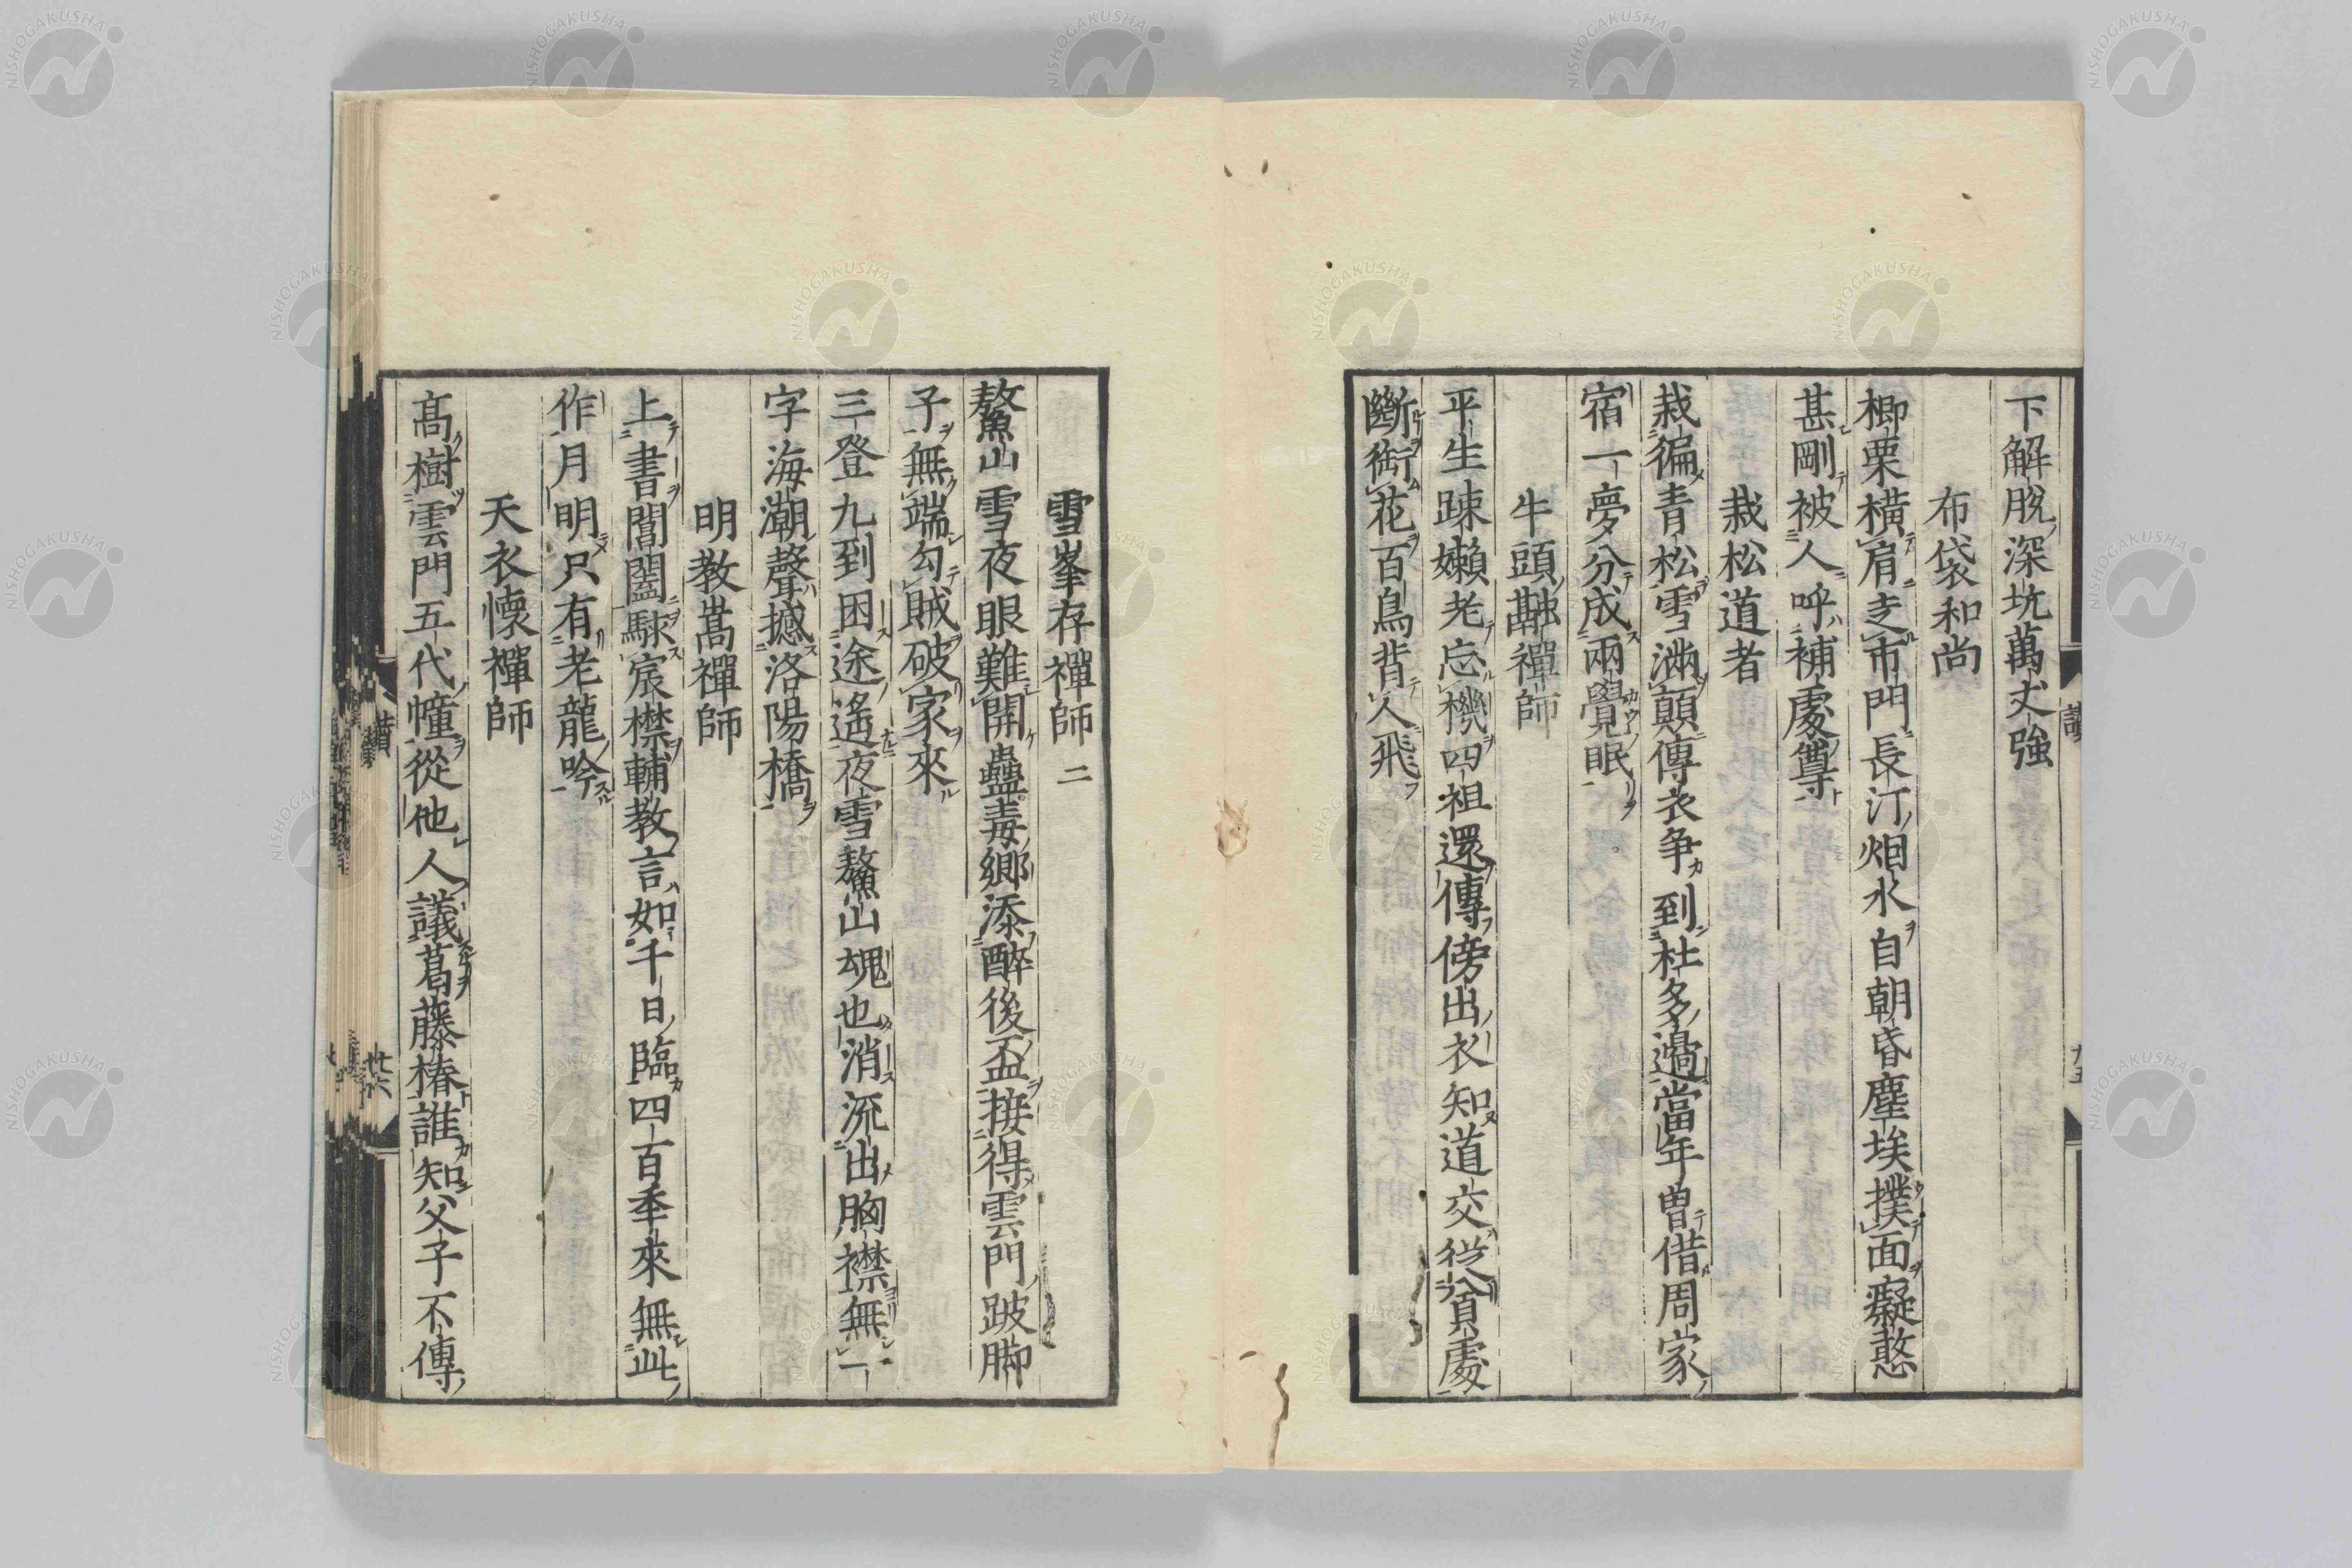 下解脫深坑萬丈強
布袋和尚
楖栗橫肩走市門長汀烟水自朝昏塵埃撲面癡憨
甚剛被人呼補處尊
栽松道者
栽徧青松雪滿顛傳衣爭到杜多邊當年曾借周家
宿一夢分成兩覺眠
牛頭融禪師
平生踈嬾老忘機四祖還傳傍出衣知道交從貧處
斷銜花百鳥背人飛
雪峯存禪師 二
鰲山雪夜眼難開蠱毒鄉添醉後盃接得雲門跛脚
子無端勾賊破家來
三登九到困途遙夜雪鰲山塊也消流出胸襟無一
字海潮聲撼洛陽橋
明教嵩禪師
上書閶闔駭宸襟輔教言如千日臨四百年來無此
作月明只有老龍吟
天衣懷禪師
高樹雲門五代幢從他人議葛藤樁誰知父子不傳
讚
廿六
NISHOGAKUSHA